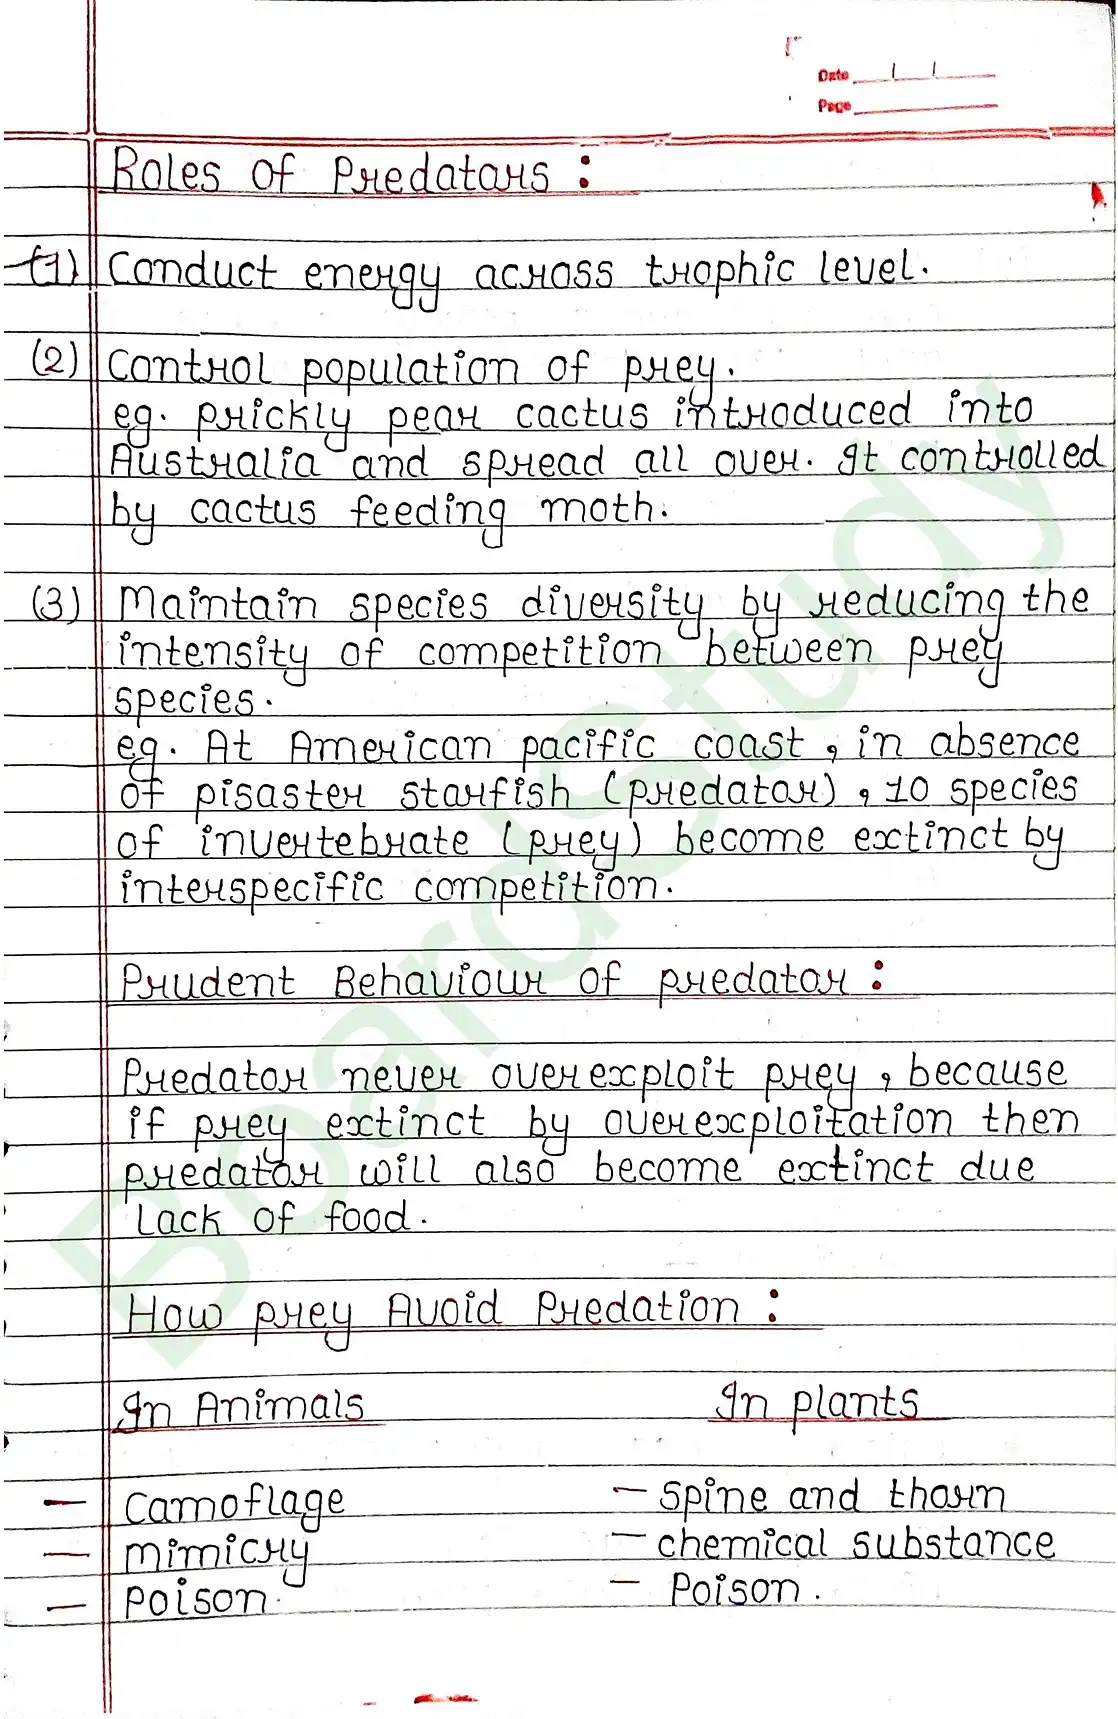 Date
Page
Roles of Predators :
(1) Conduct energy across trophic level.
(2) Control population of prey.
eg. prickly pear cactus introduced into
Australia and spread all over. It controlled
by cactus feeding moth.
(3) Maintain species diversity by reducing the
intensity of competition between prey
species.
eg. At American pacific coast, in absence
of pisaster starfish (predator), 10 species
of invertebrate (prey) become extinct by
interspecific competition.
Prudent Behaviour of predator :
Predator never overexploit prey, because
if prey extinct by overexploitation then
predator will also become extinct due
lack of food.
How prey Avoid Predation :
In Animals In plants
– camoflage – spine and thorn
– mimicry – chemical substance
– poison. – Poison.
BoardStudy